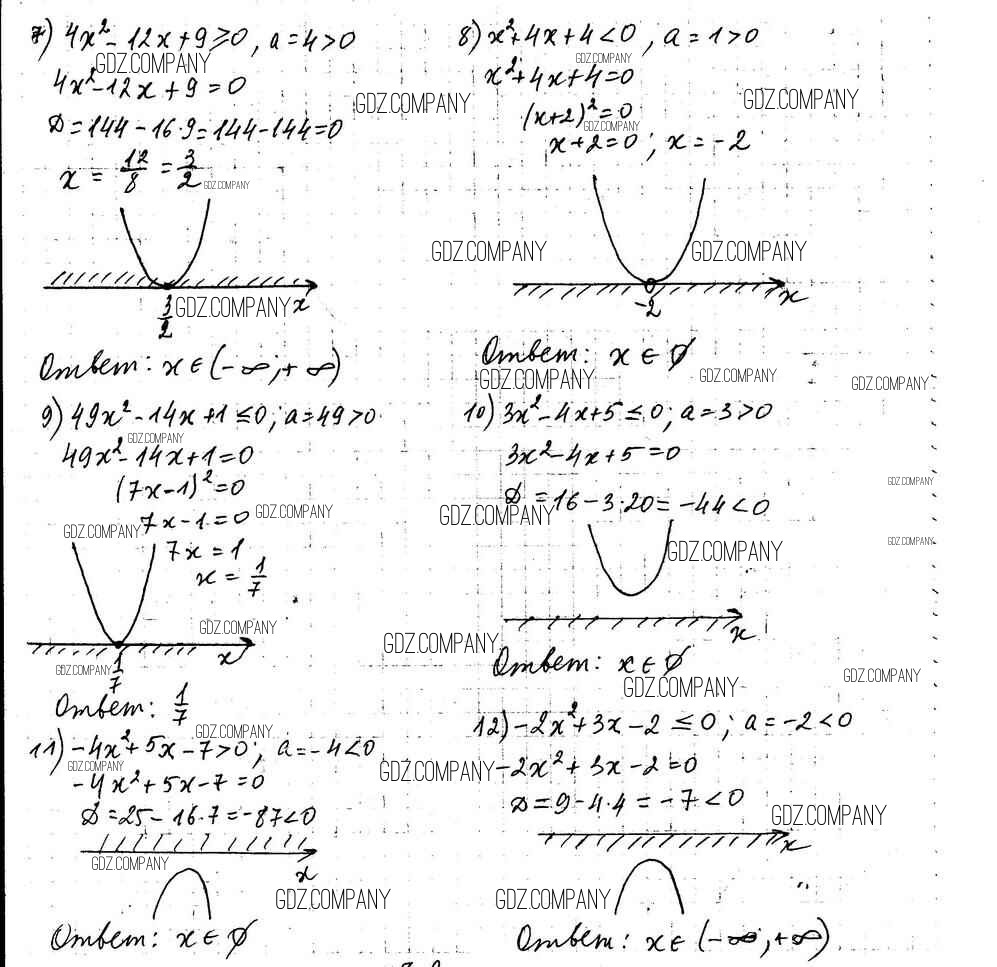 7) 4x² - 12x + 9 ≥ 0, a = 4 > 0
GDZ.COMPANY
4x² - 12x + 9 = 0
GDZ.COMPANY
D = 144 - 16·9 = 144 - 144 = 0
x = 12/8 = 3/2
GDZ.COMPANY
3/2
GDZ.COMPANY
x
Ответ: x ∈ (-∞; +∞)
8) x² + 4x + 4 < 0, a = 1 > 0
GDZ.COMPANY
x² + 4x + 4 = 0
GDZ.COMPANY
(x+2)² = 0
GDZ.COMPANY
x + 2 = 0; x = -2
GDZ.COMPANY GDZ.COMPANY
-2
x
Ответ: x ∈ ∅
GDZ.COMPANY GDZ.COMPANY GDZ.COMPANY
9) 49x² - 14x + 1 ≤ 0; a = 49 > 0
GDZ.COMPANY
49x² - 14x + 1 = 0
(7x-1)² = 0
7x - 1 = 0
GDZ.COMPANY
GDZ.COMPANY
7x = 1
x = 1/7
GDZ.COMPANY
x
GDZ.COMPANY
1/7
Ответ: 1/7
10) 3x² - 4x + 5 ≤ 0; a = 3 > 0
3x² - 4x + 5 = 0
GDZ.COMPANY
D = 16 - 3·20 = -44 < 0
GDZ.COMPANY
GDZ.COMPANY
GDZ.COMPANY
x
GDZ.COMPANY
Ответ: x ∈ ∅
GDZ.COMPANY
GDZ.COMPANY
11) -4x² + 5x - 7 > 0; a = -4 < 0
GDZ.COMPANY
GDZ.COMPANY
-4x² + 5x - 7 = 0
D = 25 - 16·7 = -87 < 0
GDZ.COMPANY
x
GDZ.COMPANY
Ответ: x ∈ ∅
12) -2x² + 3x - 2 ≤ 0; a = -2 < 0
GDZ.COMPANY
-2x² + 3x - 2 = 0
D = 9 - 4·4 = -7 < 0
GDZ.COMPANY
x
GDZ.COMPANY
Ответ: x ∈ (-∞; +∞)